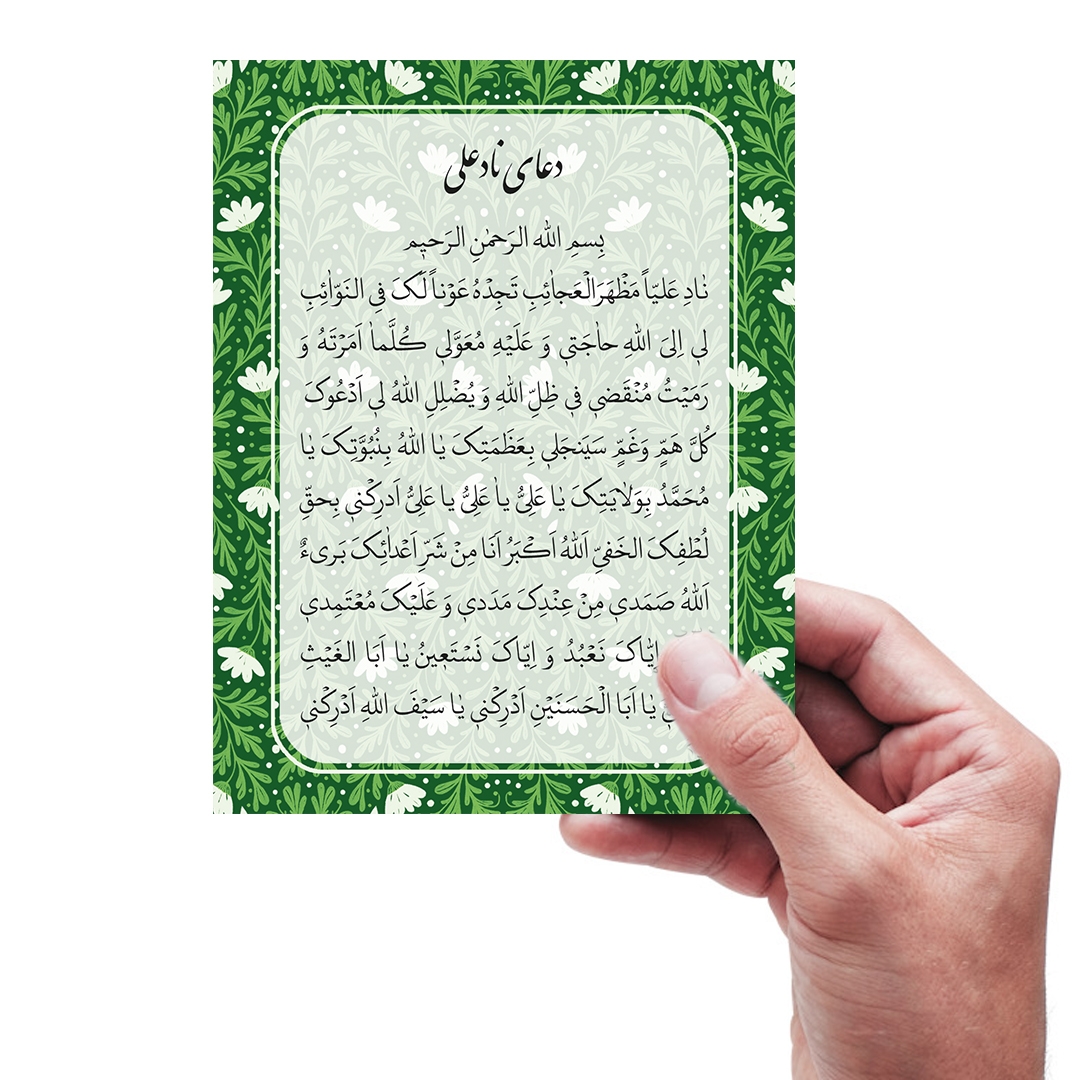 دعای نادعلی
بِسمِ اللهِ الرَحمٰنِ الرَحیٖمِ
نٰادِ عَلیّاً مَظْهَرَالْعَجٰائِبِ تَجِدْهُ عَوْناً لَکَ فِی النَوّائِبِ
لیٖ اِلیَ اللهِ حاٰجَتیٖ وَ عَلَیْهِ مُعَوَّلیٖ کُلَّماٰ اَمَرْتَهُ وَ
رَمَیْتُ مُنْقَضیٖ فیٖ ظِلِّ اللهِ وَ یُضْلِلِ اللهُ لیٖ اَدْعُوکَ
کُلَّ هَمٍّ وَغَمٍّ سَیَنجَلیٖ بِعَظَمَتِکَ یٰا اللهُ بِنُبُوَّتِکَ یٰا
مُحَمَّدُ بِوَلاٰیَتِکَ یٰا عَلِیُّ یاٰ عَلِیُّ یا عَلِیُّ اَدرِکْنیٖ بِحقِّ
لُطْفِکَ الخَفیِّ اَللهُ اَکْبَرُ اَنَا مِنْ شَرِّ اَعْدٰائِکَ بَریءٌ
اَللهُ صَمَدیٖ مِنْ عِنْدِکَ مَدَدیٖ وَ عَلَیْکَ مُعْتَمِدیٖ
اِیّاکَ نَعْبُدُ وَ اِیّاکَ نَسْتَعیٖنُ یٰا اَبَا الغَیْثِ
یٰا اَبَا الْحَسَنَیْنِ اَدْرِکْنیٖ یٰا سَیْفَ اللهِ اَدْرِکْنیٖ